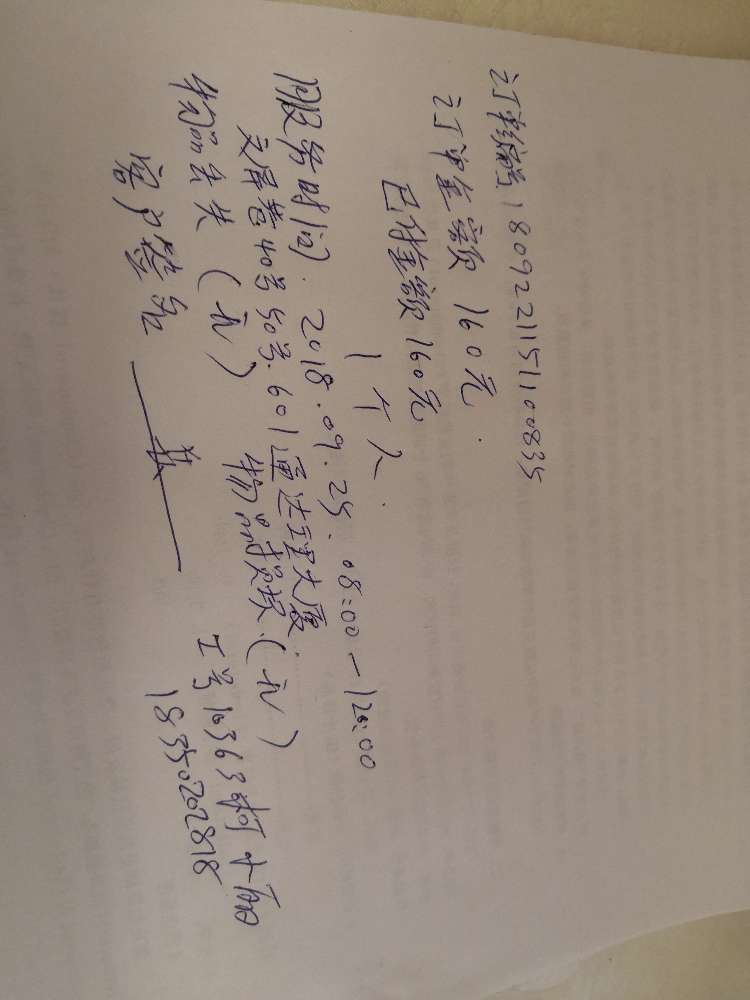 订单编号1809221151100835
订单金额 160元.
已付金额 160元
1个人.
服务时间. 2018.09.25. 08:00—12:00
天屏巷40号50号.601通达王里大厦
物品丢失(无) 物品损毁.(无)
客户签名 工号16363柯
18350202818